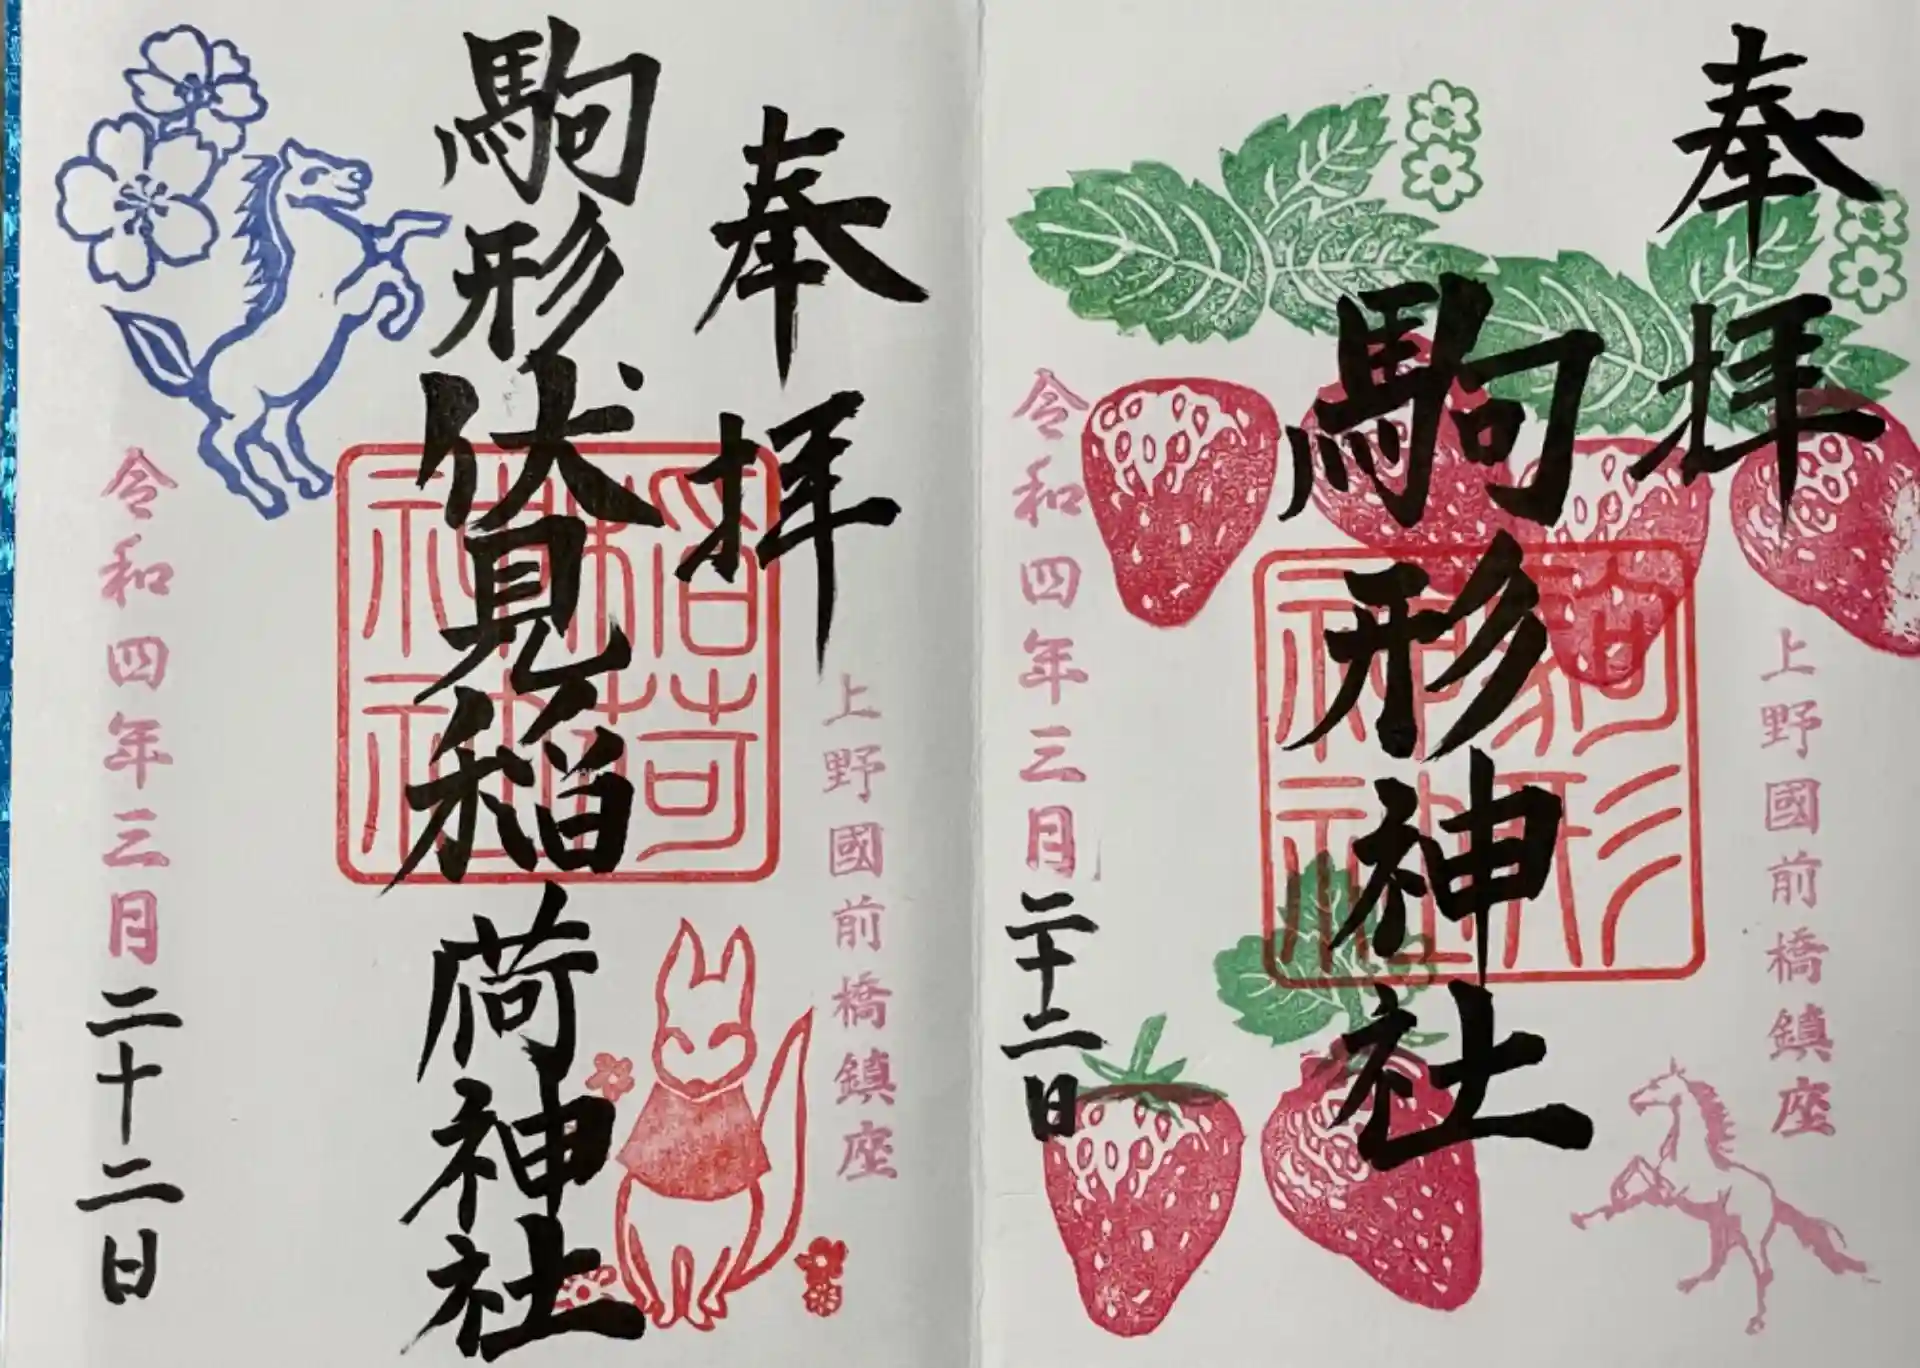 奉拝
上野國前橋鎮座
駒形神社
駒形神社
令和四年三月二十二日
奉拝
上野國前橋鎮座
駒形伏見稲荷神社
稲荷神社
令和四年三月二十二日